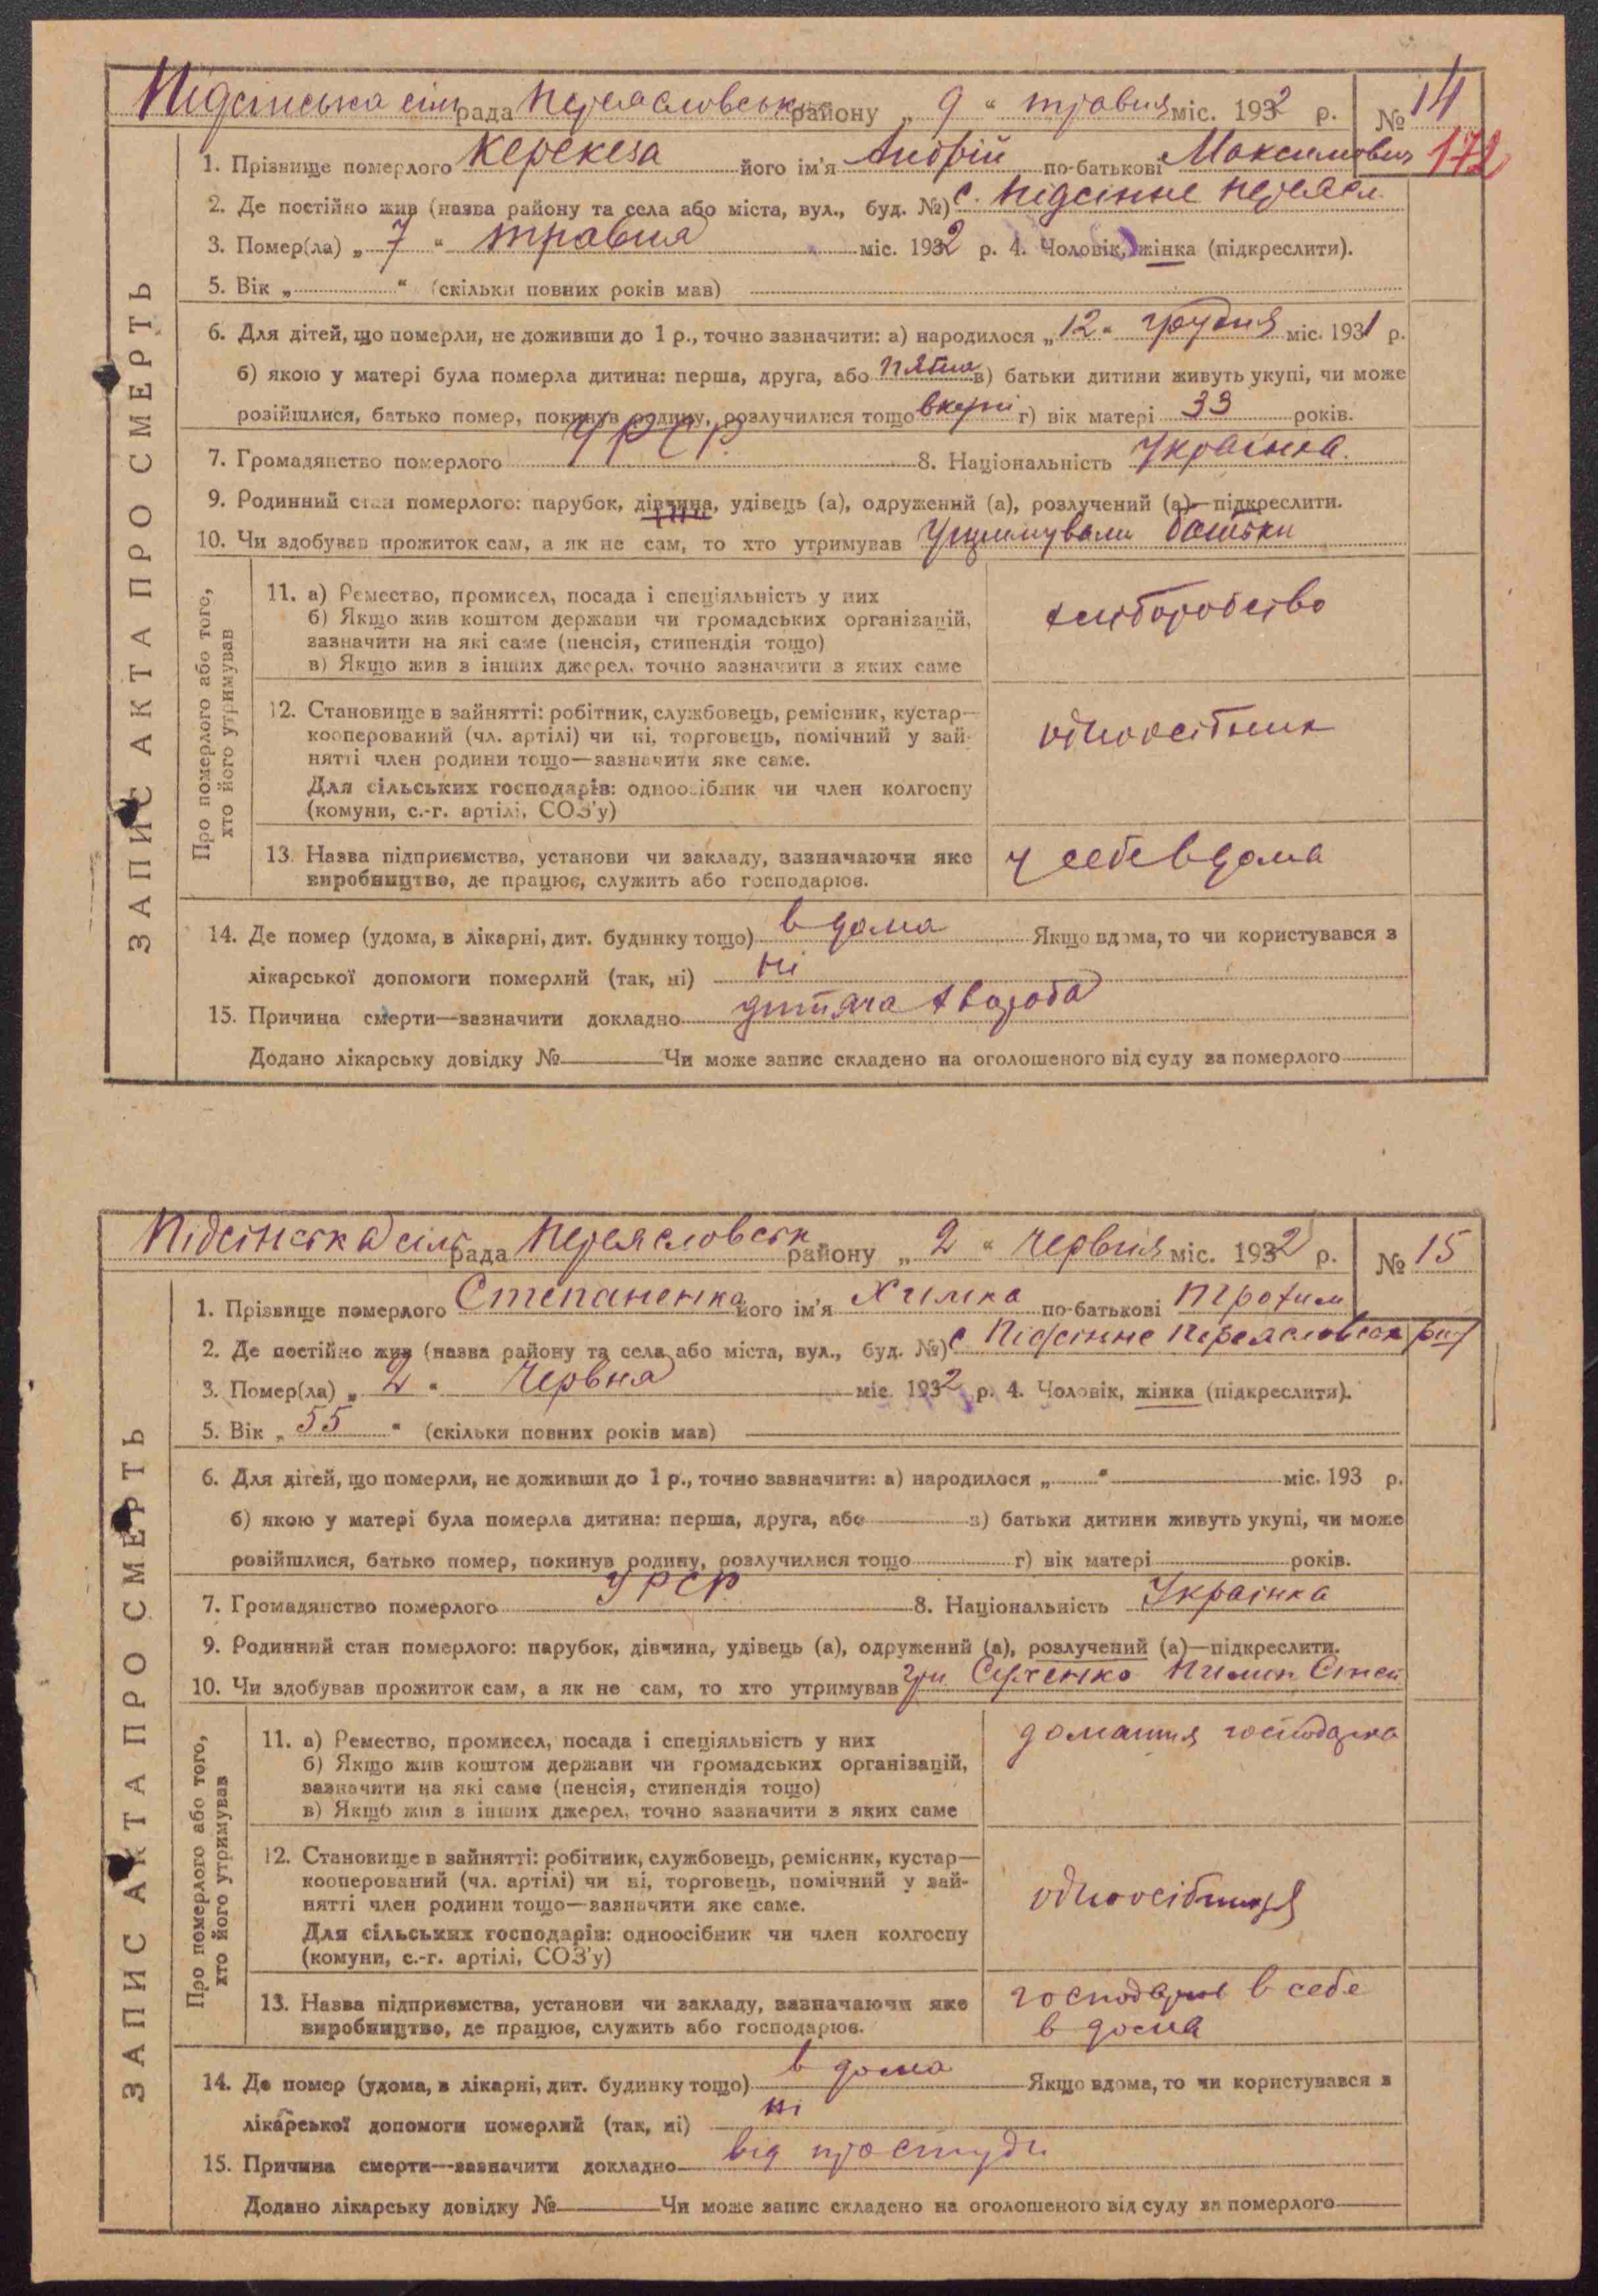 Підсінська сільрада Переясловськ району „ 9 “ травня міс. 1932 р. № 14
172
1. Прізвище померлого Керекеза його ім'я Андрій по-батькові Максимович
2. Де постійно жив (назва району та села або міста, вул., буд. №) с. Підсінне Переясл.
3. Помер(ла) „ 7 “ травня міс. 1932 р. 4. Чоловік, жінка (підкреслити).
5. Вік „ “ (скільки повних років мав)
6. Для дітей, що померли, не доживши до 1 р., точно зазначити: а) народилося „ 12 “ грудня міс. 1931 р.
б) якою у матері була померла дитина: перша, друга, або пята в) батьки дитини живуть укупі, чи може
розійшлися, батько помер, покинув родину, розлучилися тощо вкупі г) вік матері 33 років.
7. Громадянство померлого УРСР. 8. Національність Українка.
9. Родинний стан померлого: парубок, дівчина, удівець (а), одружений (а), розлучений (а)—підкреслити.
10. Чи здобував прожиток сам, а як не сам, то хто утримував Утримували батьки
ЗАПИС АКТА ПРО СМЕРТЬ
Про померлого або того, хто його утримував
11. а) Ремество, промисел, посада і спеціяльність у них
б) Якщо жив коштом держави чи громадських організацій,
зазначити на які саме (пенсія, стипендія тощо)
в) Якщо жив з інших джерел, точно зазначити з яких саме
хліборобство
12. Становище в зайнятті: робітник, службовець, ремісник, кустар—
кооперований (чл. артілі) чи ні, торговець, помічний у зай-
нятті член родини тощо—зазначити яке саме.
Для сільських господарів: одноосібник чи член колгоспу
(комуни, с.-г. артілі, СОЗ'у)
одноосібник
13. Назва підприємства, установи чи закладу, зазначаючи яке
виробництво, де працює, служить або господарює.
у себе вдома
14. Де помер (удома, в лікарні, дит. будинку тощо) вдома Якщо вдома, то чи користувався з
лікарської допомоги померлий (так, ні) ні
15. Причина смерти—зазначити докладно дитяча хвороба
Додано лікарську довідку № Чи може запис складено на оголошеного від суду за померлого
Підсінська сільрада Переясловськ району „ 2 “ червня міс. 1932 р. № 15
1. Прізвище померлого Степаненко його ім'я Химка по-батькові Трохим
2. Де постійно жив (назва району та села або міста, вул., буд. №) с. Підсінне Переясловськ рну
3. Помер(ла) „ 2 “ Червня міс. 1932 р. 4. Чоловік, жінка (підкреслити).
5. Вік „ 55 “ (скільки повних років мав)
6. Для дітей, що померли, не доживши до 1 р., точно зазначити: а) народилося „ “ міс. 193 р.
б) якою у матері була померла дитина: перша, друга, або в) батьки дитини живуть укупі, чи може
розійшлися, батько помер, покинув родину, розлучилися тощо г) вік матері років.
7. Громадянство померлого УРСР 8. Національність Українка
9. Родинний стан померлого: парубок, дівчина, удівець (а), одружений (а), розлучений (а)—підкреслити.
10. Чи здобував прожиток сам, а як не сам, то хто утримував гр. Сергенко Пимин Степ
ЗАПИС АКТА ПРО СМЕРТЬ
Про померлого або того, хто його утримував
11. а) Ремество, промисел, посада і спеціяльність у них
б) Якщо жив коштом держави чи громадських організацій,
зазначити на які саме (пенсія, стипендія тощо)
в) Якщо жив з інших джерел, точно зазначити з яких саме
домашня господарка
12. Становище в зайнятті: робітник, службовець, ремісник, кустар—
кооперований (чл. артілі) чи ні, торговець, помічний у зай-
нятті член родини тощо—зазначити яке саме.
Для сільських господарів: одноосібник чи член колгоспу
(комуни, с.-г. артілі, СОЗ'у)
одноосібниця
13. Назва підприємства, установи чи закладу, зазначаючи яке
виробництво, де працює, служить або господарює.
господарює в себе
в дома
14. Де помер (удома, в лікарні, дит. будинку тощо) в дома Якщо вдома, то чи користувався з
лікарської допомоги померлий (так, ні) ні
15. Причина смерти—зазначити докладно від простуди
Додано лікарську довідку № Чи може запис складено на оголошеного від суду за померлого